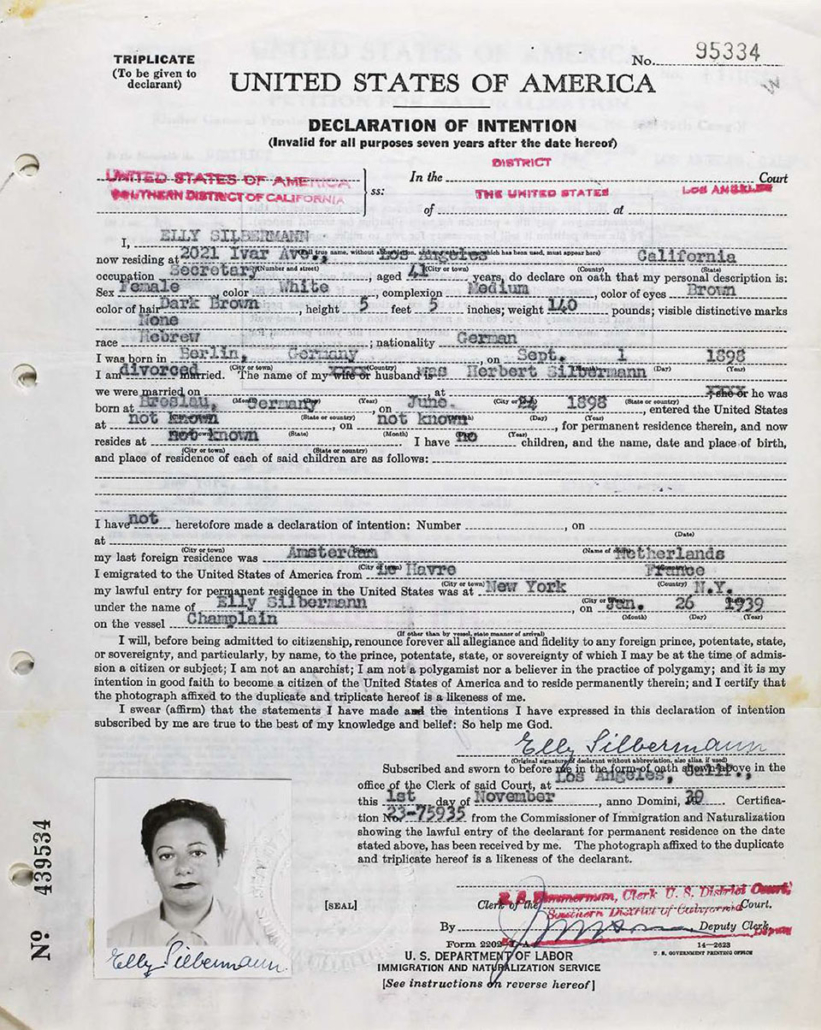 TRIPLICATE
(To be given to
declarant)
No. 95334
UNITED STATES OF AMERICA
DECLARATION OF INTENTION
(Invalid for all purposes seven years after the date hereof)
UNITED STATES OF AMERICA
SOUTHERN DISTRICT OF CALIFORNIA
ss:
In the DISTRICT Court
of THE UNITED STATES at LOS ANGELES
I, ELLY SILBERMANN
now residing at 2021 Ivar Ave., Los Angeles California
(Number and street) (City or town) (County) (State)
occupation Secretary, aged 41 years, do declare on oath that my personal description is:
Sex Female, color White, complexion Medium, color of eyes Brown
color of hair Dark Brown, height 5 feet 5 inches; weight 140 pounds; visible distinctive marks
None
race Hebrew; nationality German
I was born in Berlin, Germany, on Sept. 1 1898
(City or town) (Country) (Day) (Year)
I am divorced married. The name of my wife or husband was Herbert Silbermann
we were married on at she or he was
(Year) (City or (State or country)
born at Breslau, Germany, on 1898, entered the United States
(State or country) (Day) (Year)
at not known, on not known, for permanent residence therein, and now
(State) (Month) (Year)
resides at not known. I have no children, and the name, date and place of birth,
(City or town) (State or country)
and place of residence of each of said children are as follows:
I have not heretofore made a declaration of intention: Number, on
(Date)
at
(City or town) (Name of
my last foreign residence was Amsterdam Netherlands
I emigrated to the United States of America from Le Havre France
(City or town) (Country)
my lawful entry for permanent residence in the United States was at New York N.Y.
under the name of Elly Silbermann, on Jan. 26 1939
(Month) (Day) (Year)
on the vessel Champlain
(If other than by vessel, state manner of arrival)
I will, before being admitted to citizenship, renounce forever all allegiance and fidelity to any foreign prince, potentate, state,
or sovereignty, and particularly, by name, to the prince, potentate, state, or sovereignty of which I may be at the time of admis-
sion a citizen or subject; I am not an anarchist; I am not a polygamist nor a believer in the practice of polygamy; and it is my
intention in good faith to become a citizen of the United States of America and to reside permanently therein; and I certify that
the photograph affixed to the duplicate and triplicate hereof is a likeness of me.
I swear (affirm) that the statements I have made and the intentions I have expressed in this declaration of intention
subscribed by me are true to the best of my knowledge and belief: So help me God.
Elly Silbermann
(Original signature of declarant without abbreviation, also alias, if used)
Subscribed and sworn to before me in the form of oath shown above in the
office of the Clerk of said Court, at Los Angeles, Calif.,
this 1st day of November, anno Domini, 39 Certifica-
tion No. 23-75935 from the Commissioner of Immigration and Naturalization
showing the lawful entry of the declarant for permanent residence on the date
stated above, has been received by me. The photograph affixed to the duplicate
and triplicate hereof is a likeness of the declarant.
R. S. Zimmerman, Clerk U. S. District Court,
Southern District of California
Clerk of the Court.
[SEAL]
By Deputy Clerk
Form 2202-L-A
14-2623
U. S. DEPARTMENT OF LABOR
U. S. GOVERNMENT PRINTING OFFICE
IMMIGRATION AND NATURALIZATION SERVICE
[See instructions on reverse hereof]
Elly Silbermann
No 439534